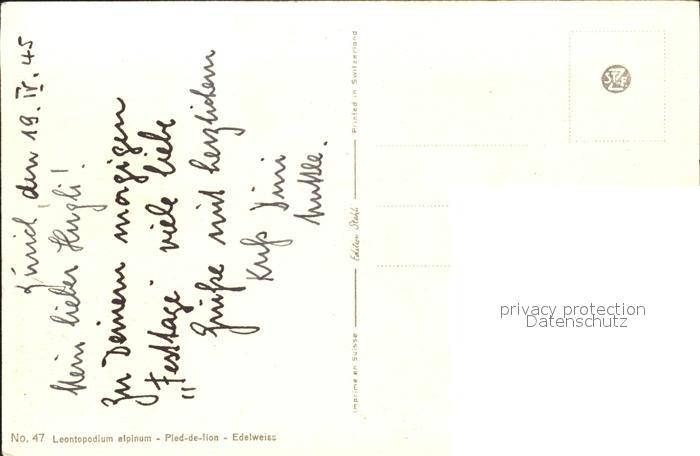 Zürich, den 19. IV. 45
Mein lieber Hugli!
Zu Deinem morgigen
"Festtage" viele liebe
Grüße mit herzlichem
Kuß Dini
Mutter.
Imprimé en Suisse
Edition Stehli
Printed in Switzerland
No. 47 Leontopodium alpinum - Pied-de-lion - Edelweiss
privacy protection
Datenschutz